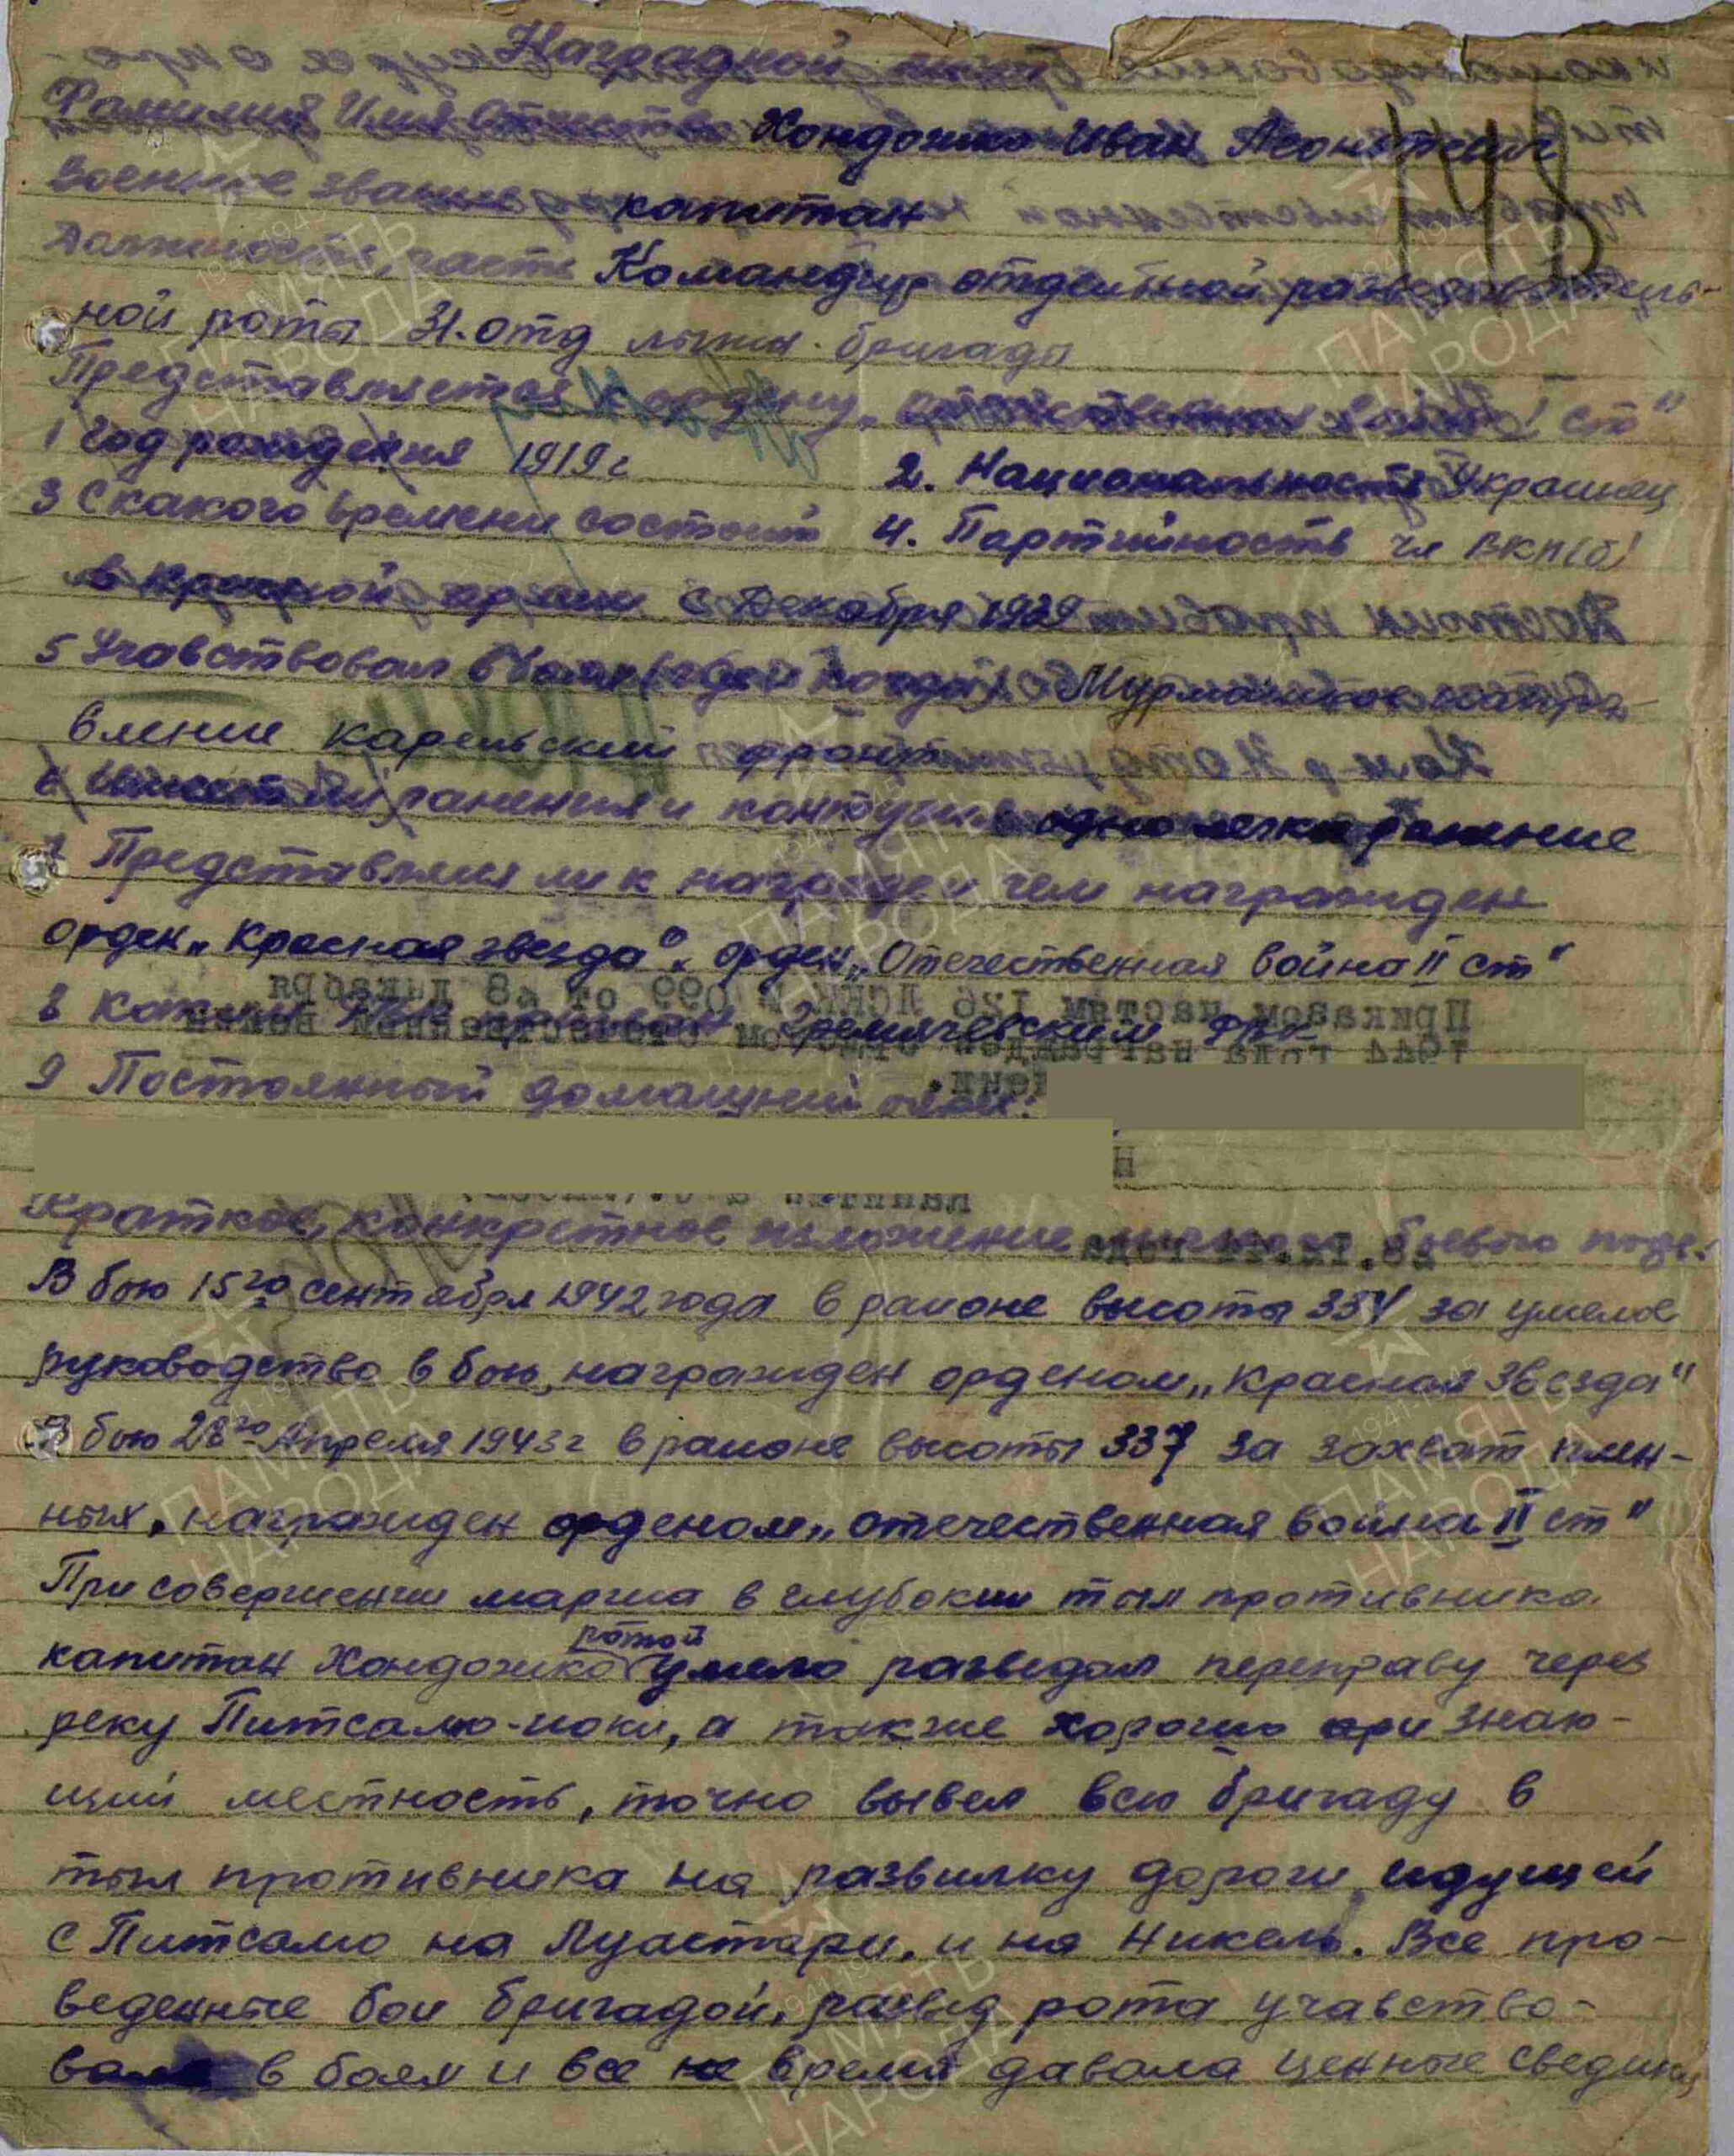 Наградной лист
Фамилия Имя Отчество Хондожко Иван Леонтевич
148
Военное звание капитан
Должность, часть Командир отдельной разведыватель-
ной роты 31. отд лыжн. бригады
Представляется к ордену „отечественная война I ст"
1 Год рождения 1919 г 2. Национальность Украинец
3 С какого времени состоит 4. Партийность чл ВКП(б)
в красной армии с Декабря 1939
5 Учавствовал в боях (где и когда) Мурманское напра-
вление карельский фронт
6 Имеет ли ранения и контузии одно легкое ранение
7 Представлялся ли к награде и чем награжден
орден „Красная звезда", орден „Отечественная война II ст"
8 Каким РВК призван Гремячевским РВК
9 Постоянный домашний адрес:
Краткое, конкретное изложение личного боевого подв.
В бою 15го сентября 1942 года в районе высоты 334 за умелое
руководство в бою, награжден орденом „Красная Звезда"
В бою 28го Апреля 1943 г в районе высоты 337 за захват плен-
ных, награжден орденом „отечественная война II ст"
При совершении марша в глубокий тыл противника
капитан Хондожко ротой умело разведал переправу через
реку Питсамо-иоки, а также хорошо знаю-
щий местность, точно вывел всю бригаду в
тыл противника на развилку дороги идущей
с Питсамо на Луастари, и на Никель. Все про-
веденные бои бригадой, развед рота учавство-
вала в боях и все время давала ценные сведения
Приказом частям 126 ЛСНК № 099 от 28 декабря
1944 года награжден орденом отечественная война
28.12.44 года
ПАМЯТЬ
НАРОДА
1941-1945